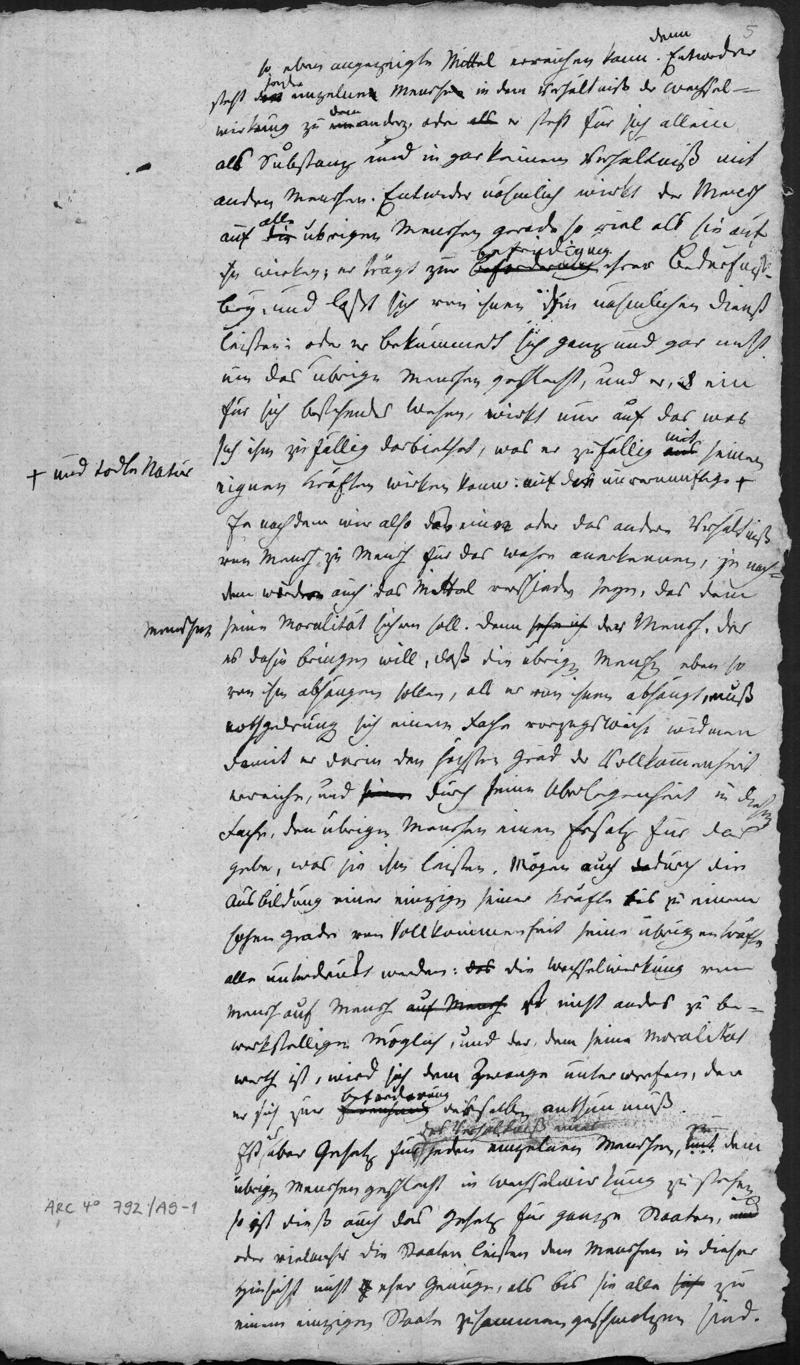 5
denn
so eben angezeigte Mittel erreichen kann. Entweder
jeder
steht der einzelne Mensch in dem Verhältniß der Wechsel=
dem
wirkung zu anderz, oder als er steht für sich allein
als Substanz und in gar keinem Verhältniß mit
andern Menschen. Entweder nähmlich wirkt der Mensch
alle
auf die übrigen Menschen gerade so viel als sie auf
befriedigung
ihn wirken; er trägt zur beförderung ihrer Bedürfniße
bey, und läßt sich von ihnen den nähmlichen Dienst
leisten: oder er bekümmert sich ganz und gar nicht
um das übrige Menschengeschlecht, und er, als ein
für sich bestehendes Wesen, wirkt nur auf das was
mit
sich ihm zufällig darbiethet, was er zufällig aus seinen
+ und todte Natur
eignen Kräften wirken kann: auf die unvernünftige +
Je nachdem wir also das eine oder das andere Verhältniß
von Mensch zu Mensch für das wahre anerkennen, je nach=
dem werden auch das Mittel verschieden seyn, das dem
Menschen
seine Moralität sichern soll. Denn der Mensch, der
es dahin bringen will, daß die übrigen Menschen eben so
von ihm abhängen sollen, als er von ihnen abhängt, muß
nothgedrungen sich einem Fache vorzugsweise widmen
damit er darin den höchsten Grad der Vollkommenheit
erreiche, und seine durch seine Überlegenheit in diesem
Fache, den übrigen Menschen einen Ersatz für das
gebe, was sie ihm leisten. Mögen auch dadurch die
Ausbildung einer einzigen seiner Kräfte bis zu einem
hohen Grade von Vollkommenheit seine übrigen Kräfte
alle unterdrückt werden: das die Wechselwirkung von
Mensch auf Mensch auf Mensch ist nicht anders zu be=
werkstelligen möglich, und der, dem seine Moralität
werth ist, wird sich dem Zwange unterwerfen, den
beförderung
er sich zur derselben anthun muß.
das Verhältniß
Ist es aber Gesetz für jeden einzelnen Menschen,
zu
mit dem
übrigen Menschengeschlecht in Wechselwirkung zu stehen
so ist dieß auch das Gesetz für ganze Staaten, und
oder vielmehr die Staaten leisten dem Menschen in dieser
Hinsicht nicht eher Genüge, als bis sie alle sich zu
einem einzigen Staate zusammengeschmolzen sind.
ARC 4° 792/A9-1